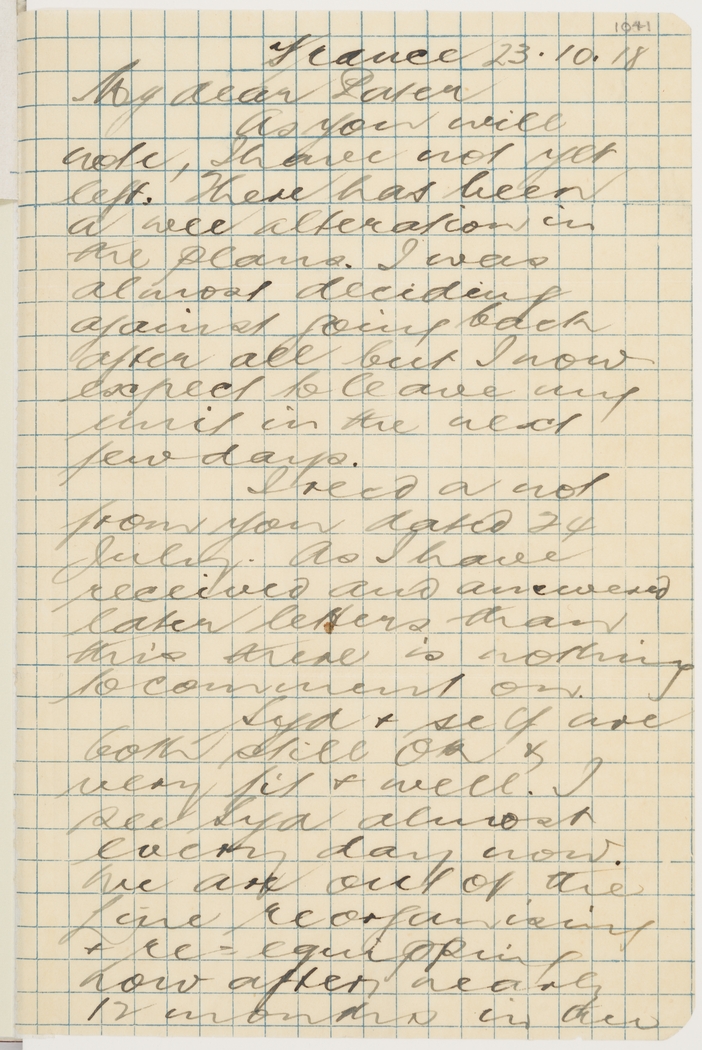 1041
France 23.10.18
My dear Pater
As you will
note, I have not yet
left. There has been
a wee alteration in
the plans. I was
almost deciding
against going back
after all but I now
expect to leave my
unit in the next
few days.
I recd a not
from you dated 24
July. As I have
received and answered
later letters than
this there is nothing
to comment on.
Syd + self are
both still OK &
very fit + well. I
see Syd almost
every day now.
We are out of the
Line reorganising
+ re-equipping
now after nearly
12 months in the